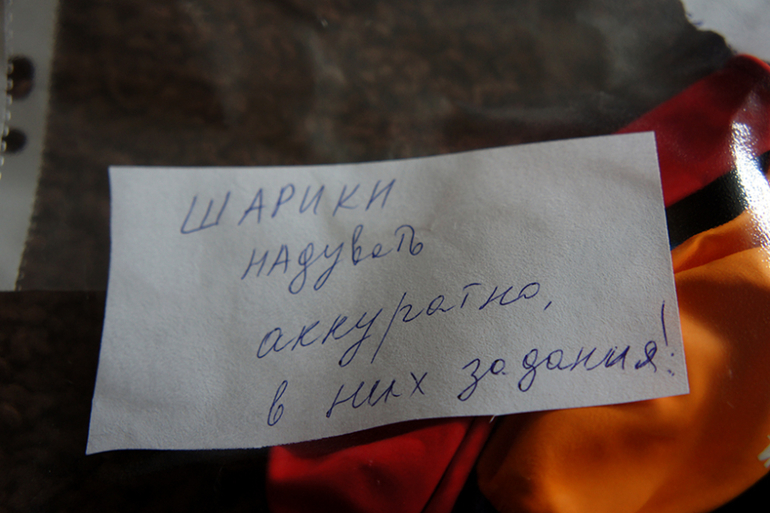 ШАРИКИ
надувать
аккуратно,
в них задания!